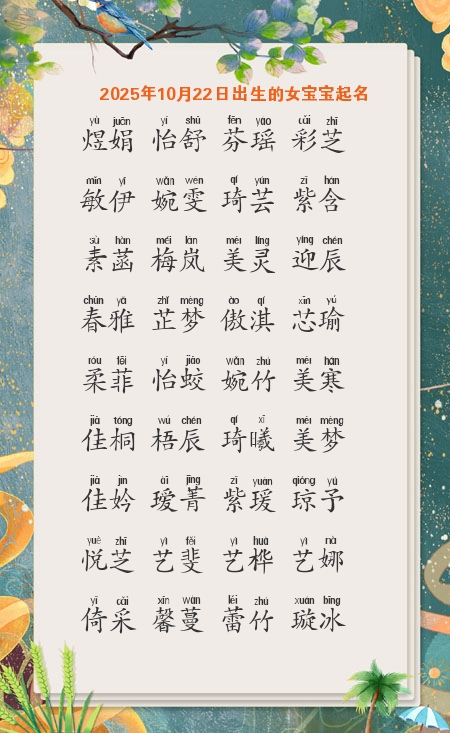 2025年10月22日出生的女宝宝起名
yù juān yí shū fēn yáo cǎi zhī
煜娟 怡舒 芬瑶 彩芝
mǐn yī wǎn wén qí yún zǐ hán
敏伊 婉雯 琦芸 紫含
sù hàn méi lán měi líng yíng chén
素菡 梅岚 美灵 迎辰
chūn yǎ zhǐ mèng ào qí xīn yú
春雅 芷梦 傲淇 芯瑜
róu fēi yí jiāo wǎn zhú měi hán
柔菲 怡蛟 婉竹 美寒
jiā tóng wú chén qí xī měi mèng
佳桐 梧辰 琦曦 美梦
jiā jìn ài jīng zǐ yuàn qióng yú
佳妗 瑷菁 紫瑗 琼予
yuè zhī yì fěi yì huà yì nà
悦芝 艺斐 艺桦 艺娜
yǐ cǎi xīn wàn lěi zhú xuán bīng
倚采 馨蔓 蕾竹 璇冰